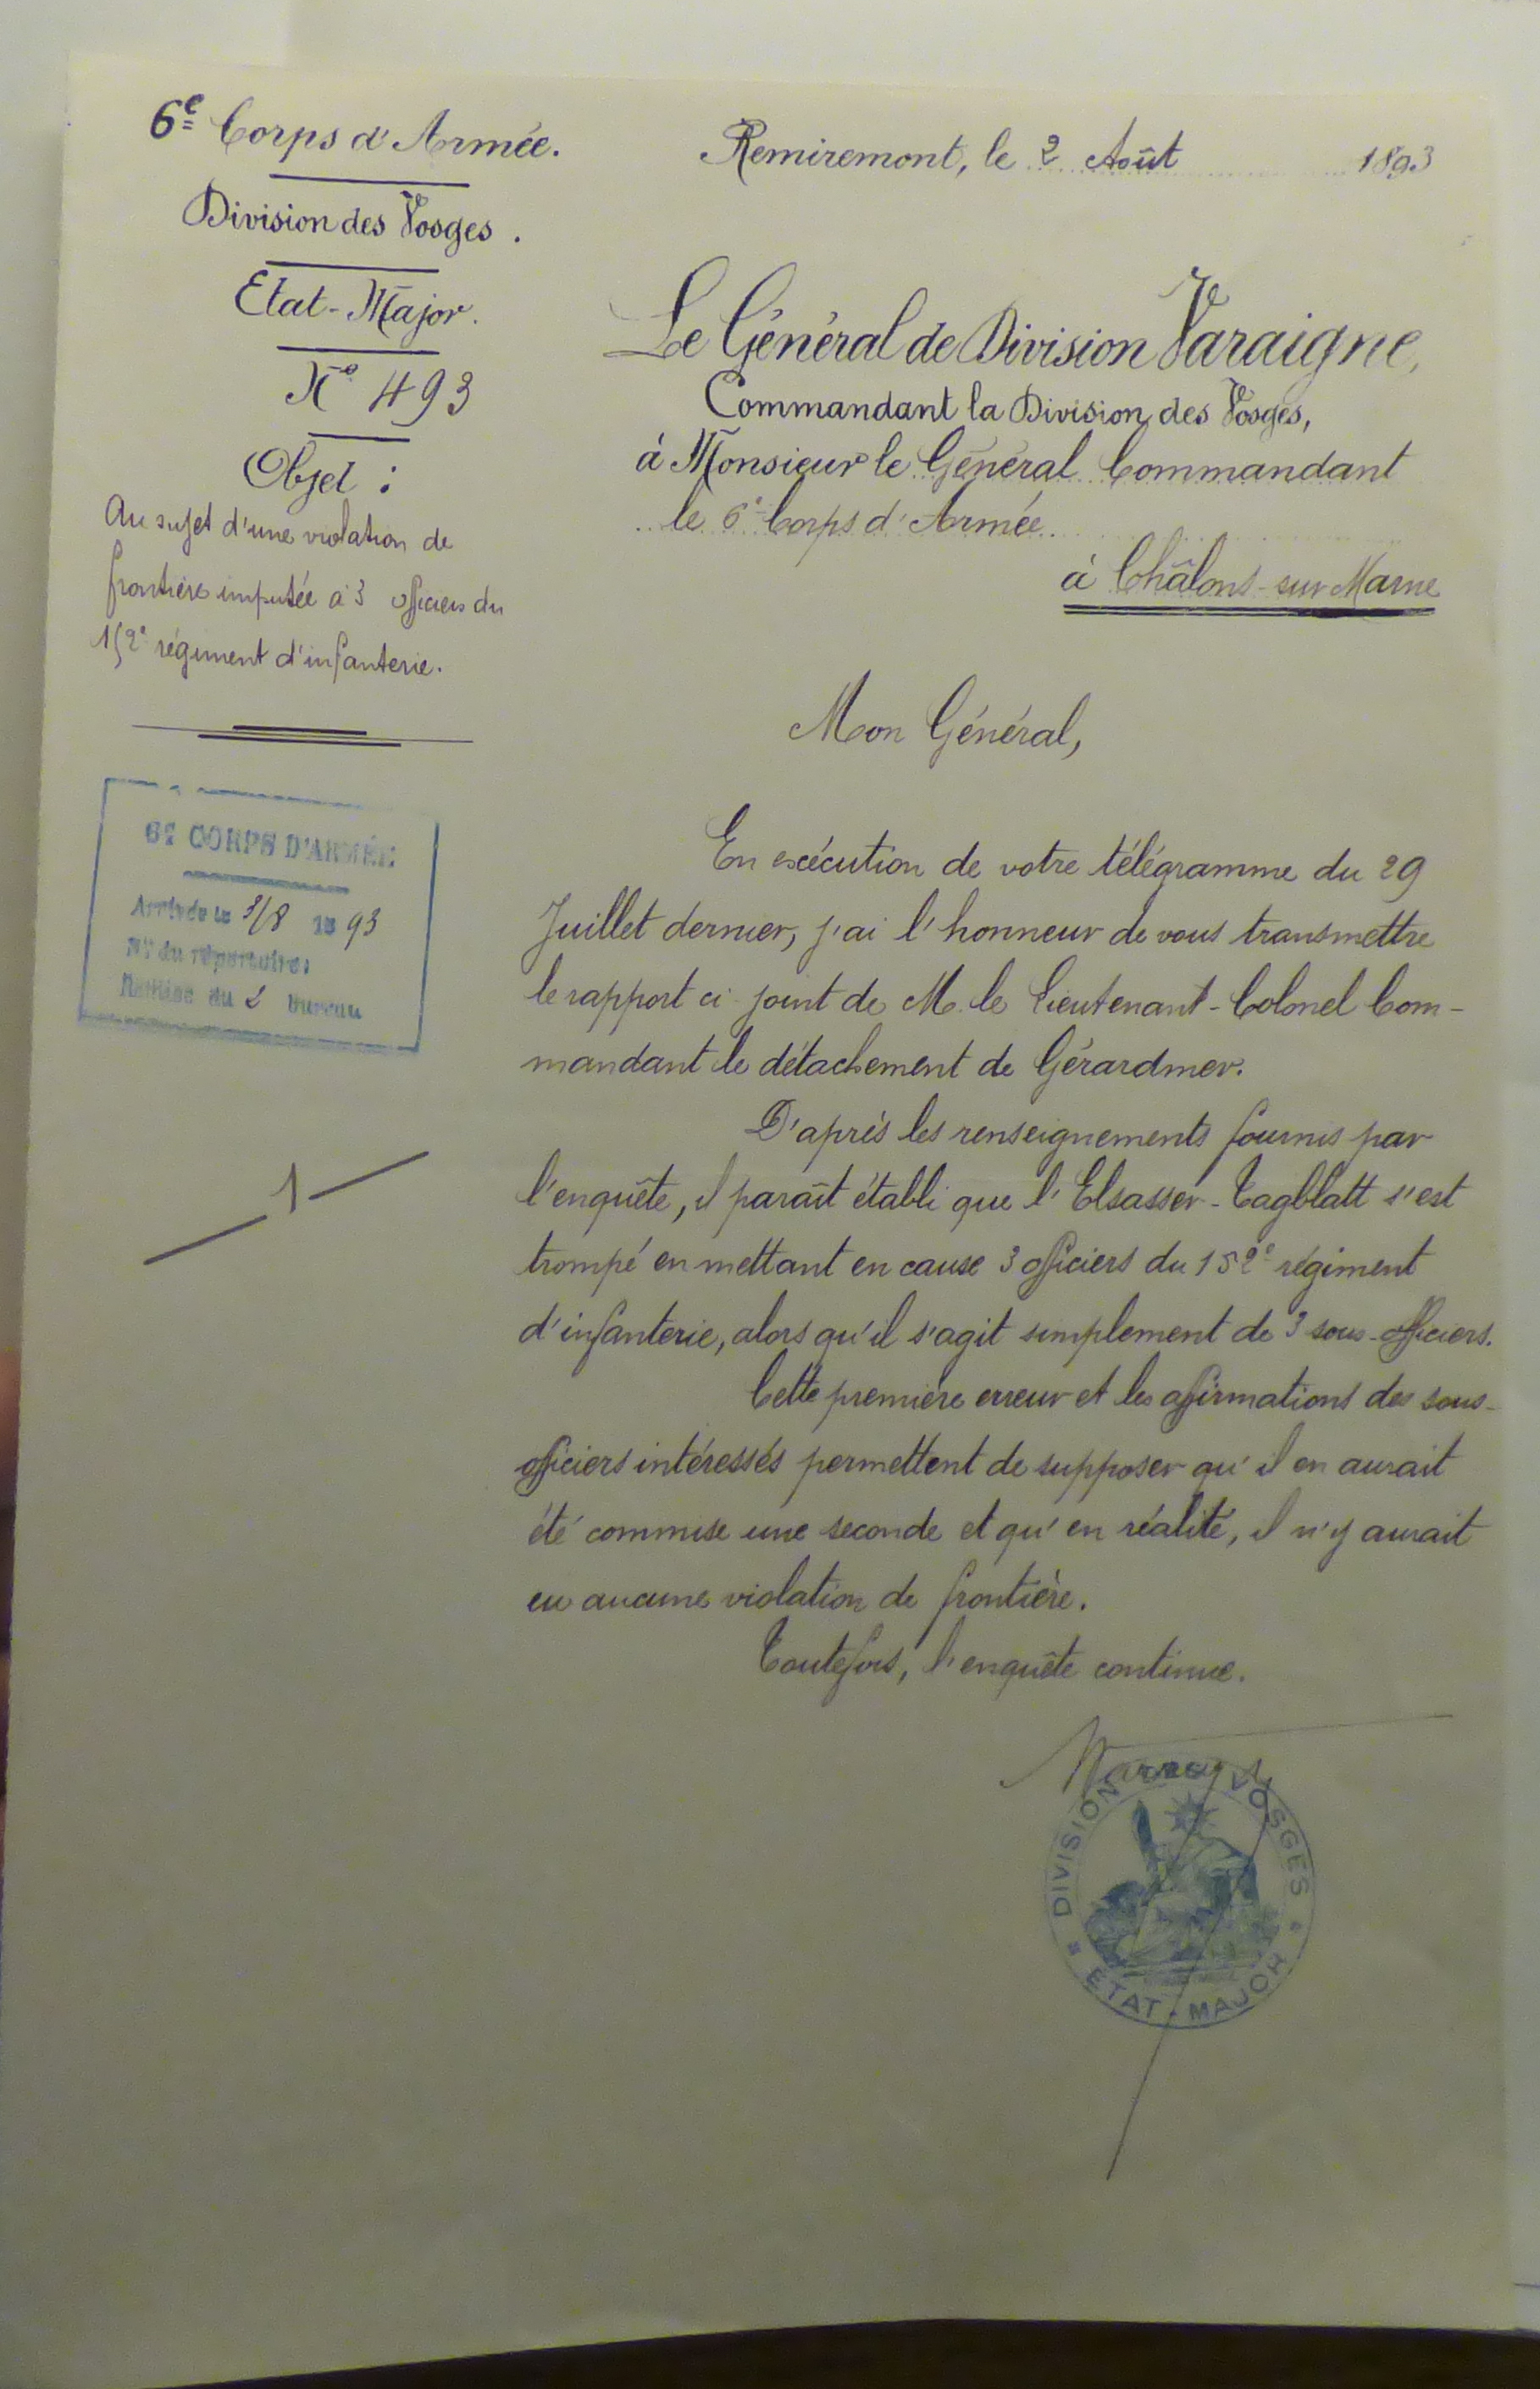 6e Corps d'Armée.
Division des Vosges.
Etat-Major.
No 493
Objet :
Au sujet d'une violation de
frontière imputée à 3 officiers du
152e régiment d'infanterie.
6e CORPS D'ARMÉE
Arrivée le 3/8 1893
No du répertoire:
Remise au 2 bureau
1
Remiremont, le 2 Août 1893
Le Général de Division Varaigne,
Commandant la Division des Vosges,
à Monsieur le Général Commandant
le 6e Corps d'Armée
à Châlons-sur-Marne
Mon Général,
En exécution de votre télégramme du 29
Juillet dernier, j'ai l'honneur de vous transmettre
le rapport ci-joint de M. le Lieutenant-Colonel Com-
mandant le détachement de Gérardmer.
D'après les renseignements fournis par
l'enquête, il paraît établi que l'Elsasser-Tagblatt s'est
trompé en mettant en cause 3 officiers du 152e régiment
d'infanterie, alors qu'il s'agit simplement de 3 sous-officiers.
Cette première erreur et les affirmations des sous-
officiers intéressés permettent de supposer qu'il en aurait
été commise une seconde et qu'en réalité, il n'y aurait
eu aucune violation de frontière.
Toutefois, l'enquête continue.
Varaigne
DIVISION DES VOSGES
ETAT-MAJOR